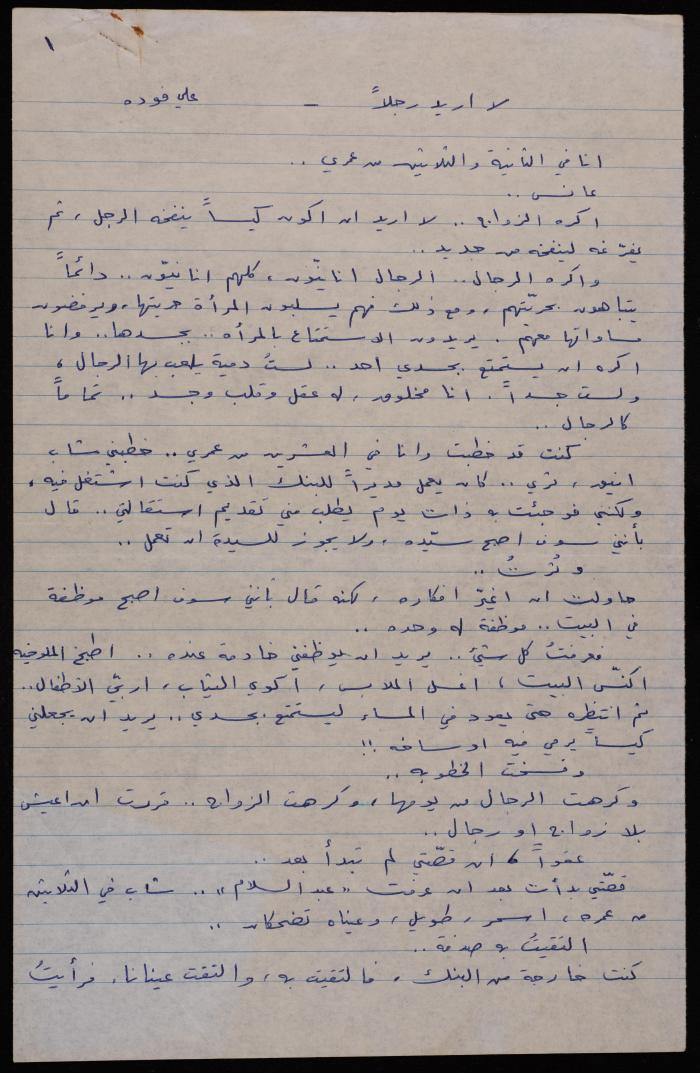 ١
لا اريد رجلاً – علي فوده
انا في الثانية والثلاثين من عمري ..
عانس ..
اكره الزواج .. لا اريد ان اكون كيساً ينفخه الرجل ، ثم
يفرّغه لينفخه من جديد ..
واكره الرجال .. الرجال انانيّون ، كلهم انانيّون .. دائماً
يتباهون بحريّتهم ، ومع ذلك فهم يسلبون المرأة حريتها ، ويرفضون
مساواتها معهم . يريدون الاستمتاع بالمرأه .. بجسدها .. وانا
اكره ان يستمتع بجسدي احد .. لستُ دمية يلعب بها الرجال ،
ولست جسداً . انا مخلوق ، له عقل وقلب وجسد .. تماماً
كالرجال ..
كنت قد خطبت وانا في العشرين من عمري .. خطبني شاب
انيق ، ثري .. كان يعمل مديراً للبنك الذي كنت اشتغل فيه ،
ولكنني فوجئت به ذات يوم يطلب مني تقديم استقالتي .. قال
بأنني سوف اصبح سيّده ، ولا يجوز للسيدة ان تعمل ..
وثرتُ ..
حاولت ان اغيّر افكاره ، لكنه قال بأنني سوف اصبح موظفة
في البيت .. موظفة له وحده ..
فعرفتُ كل شئ .. يريد ان يوظفني خادمة عنده .. اطبخ الملوخيه
اكنّس البيت ، اغسل الملابس ، أكوي الثياب ، اربّي الأطفال ..
ثم انتظره حتى يعود في المساء ليستمتع بجسدي .. يريد ان يجعلني
كيساً يرمي فيه اوساخه !!
وفسخت الخطوبه ..
وكرهت الرجال من يومها ، وكرهت الزواج .. قررت ان اعيش
بلا زواج او رجال ..
عفواً ، ان قصّتي لم تبدأ بعد ..
قصّتي بدأت بعد ان عرفت « عبد السلام » .. شاب في الثلاثين
من عمره ، اسمر ، طويل ، وعيناه تضحكان ..
التقيتُ به صدفة ..
كنت خارجة من البنك ، فالتقيت به ، والتقت عينانا ، فرأيتُ